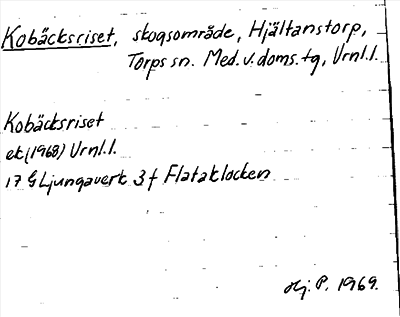 Kobäcksriset, skogsområde, Hjältanstorp,
Torps sn. Med. v. doms. tg, Vrnl.l.
Kobäcksriset
ek (1968) Vrnl.l.
17 G Ljungaverk 3 f Flataklocken
P. 1969.